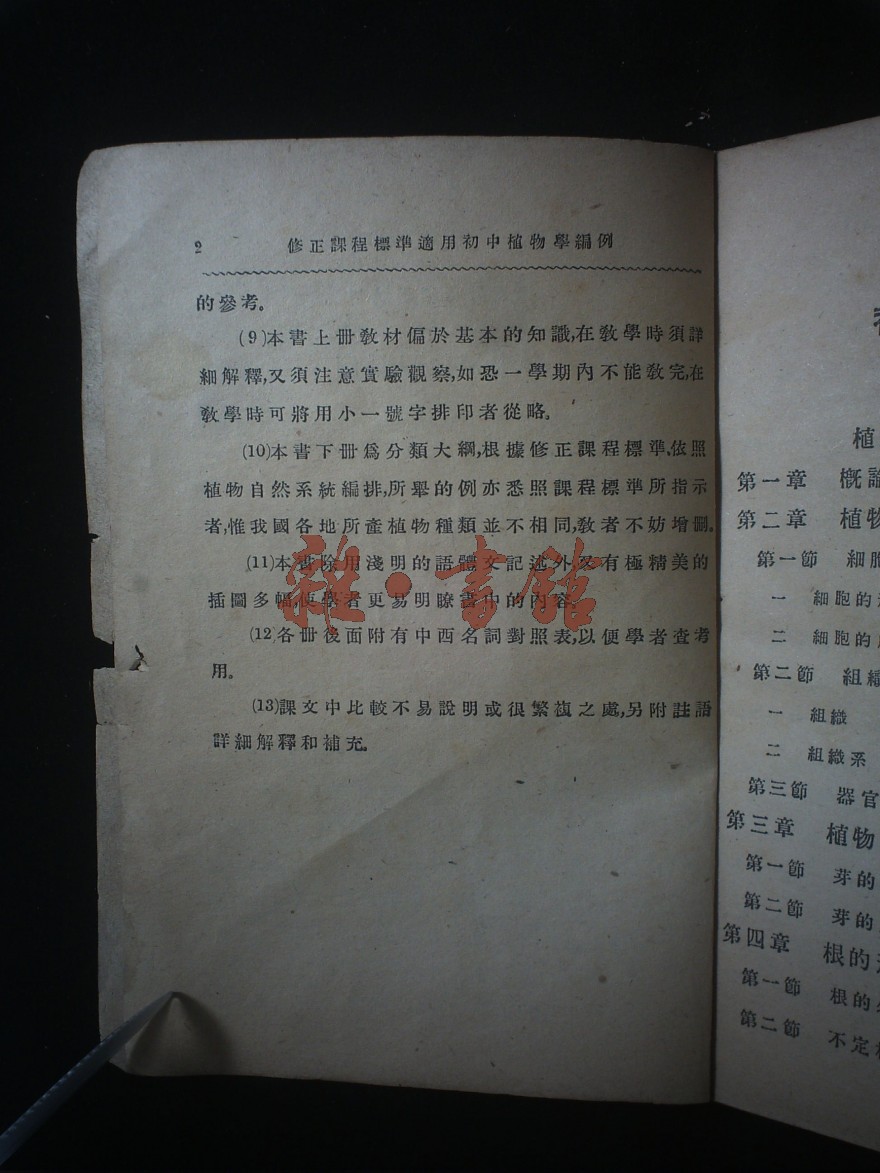 2 修正課程標準適用初中植物學編例
的參考。
(9)本書上册敎材偏於基本的知識,在敎學時須詳
細解釋,又須注意實驗觀察,如恐一學期內不能敎完,在
敎學時可將用小一號字排印者從略。
(10)本書下册爲分類大綱,根據修正課程標準,依照
植物自然系統編排,所舉的例亦悉照課程標準所指示
者,惟我國各地所產植物種類並不相同,敎者不妨增刪。
(11)本書除用淺明的語體文記述外,又有極精美的
插圖多幅,使學者更易明瞭書中的內容。
(12)各册後面附有中西名詞對照表,以便學者查考
用。
(13)課文中比較不易說明或很繁複之處,另附註語
詳細解釋和補充。
雜·書館
植
第一章 概
第二章 植物
第一節 細胞
一 細胞的
二 細胞的
第二節 組織
一 組織
二 組織系
第三節 器官
第三章 植物
第一節 芽的
第二節 芽的
第四章 根的
第一節 根的
第二節 不定